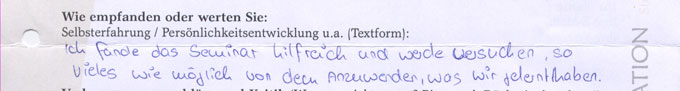 Wie empfanden oder werten Sie:
Selbsterfahrung / Persönlichkeitsentwicklung u.a. (Textform):
Ich fande das Seminar hilfreich und werde versuchen, so
vieles wie möglich von dem Anzuwenden, was wir gelernt haben.
ATION